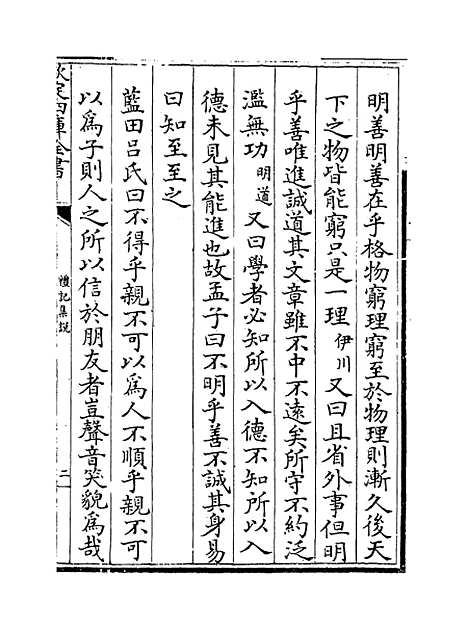 明善明善在乎格物窮理窮至於物理則漸久後天
下之物皆能窮只是一理伊川又曰且省外事但明
乎善唯進誠道其文章雖不中不遠矣所守不約泛
濫無功明道又曰學者必知所以入德不知所以入
德未見其能進也故孟子曰不明乎善不誠其身易
曰知至至之
藍田吕氏曰不得乎親不可以為人不順乎親不可
以為子則人之所以信於朋友者豈聲音笑貌為哉
欽定四庫全書
禮記集說
二